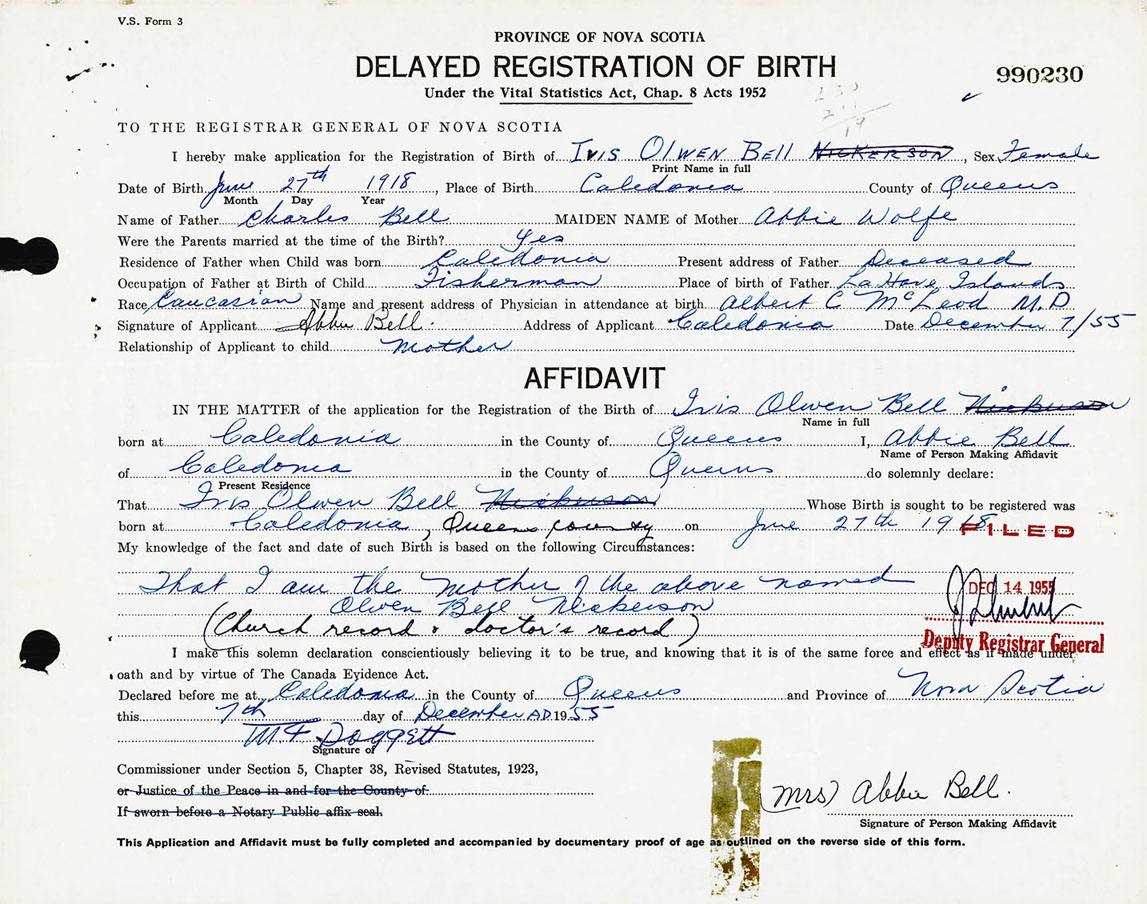 V.S. Form 3
PROVINCE OF NOVA SCOTIA
DELAYED REGISTRATION OF BIRTH
990230
Under the Vital Statistics Act, Chap. 8 Acts 1952
TO THE REGISTRAR GENERAL OF NOVA SCOTIA
I hereby make application for the Registration of Birth of Ivis Olwen Bell Nickerson, Sex Female
Print Name in full
Date of Birth June 27th 1918, Place of Birth Caledonia County of Queens
Month Day Year
Name of Father Charles Bell MAIDEN NAME of Mother Abbie Wolfe
Were the Parents married at the time of the Birth? Yes
Residence of Father when Child was born Caledonia Present address of Father Deceased
Occupation of Father at Birth of Child Fisherman Place of birth of Father La Have Islands
Race Caucasian Name and present address of Physician in attendance at birth Albert C McLeod M.D.
Signature of Applicant Abbie Bell. Address of Applicant Caledonia Date December 7/55
Relationship of Applicant to child Mother
AFFIDAVIT
IN THE MATTER of the application for the Registration of the Birth of Iris Olwen Bell Nickerson
Name in full
born at Caledonia in the County of Queens I, Abbie Bell
Name of Person Making Affidavit
of Caledonia in the County of Queens do solemnly declare:
Present Residence
That Iris Olwen Bell Nickerson Whose Birth is sought to be registered was
born at Caledonia, Queens County on June 27th 1918
FILED
My knowledge of the fact and date of such Birth is based on the following Circumstances:
That I am the Mother of the above named
Olwen Bell Nickerson
DEC 14 1955
(Church record & doctor's record)
Deputy Registrar General
I make this solean declaration conscientiously believing it to be true, and knowing that it is of the same force and effect as if made under
oath and by virtue of The Canada Eyidence Act.
Declared before me at Caledonia in the County of Queens and Province of Nova Scotia
this 7th day of December A.D. 1955
M F Doggett
Signature of
Commissioner under Section 5, Chapter 38, Revised Statutes, 1923,
or Justice of the Peace in and for the County of
If sworn before a Notary Public affix seal.
(Mrs) Abbie Bell.
Signature of Person Making Affidavit
This Application and Affidavit must be fully completed and accompanied by documentary proof of age as outlined on the reverse side of this form.